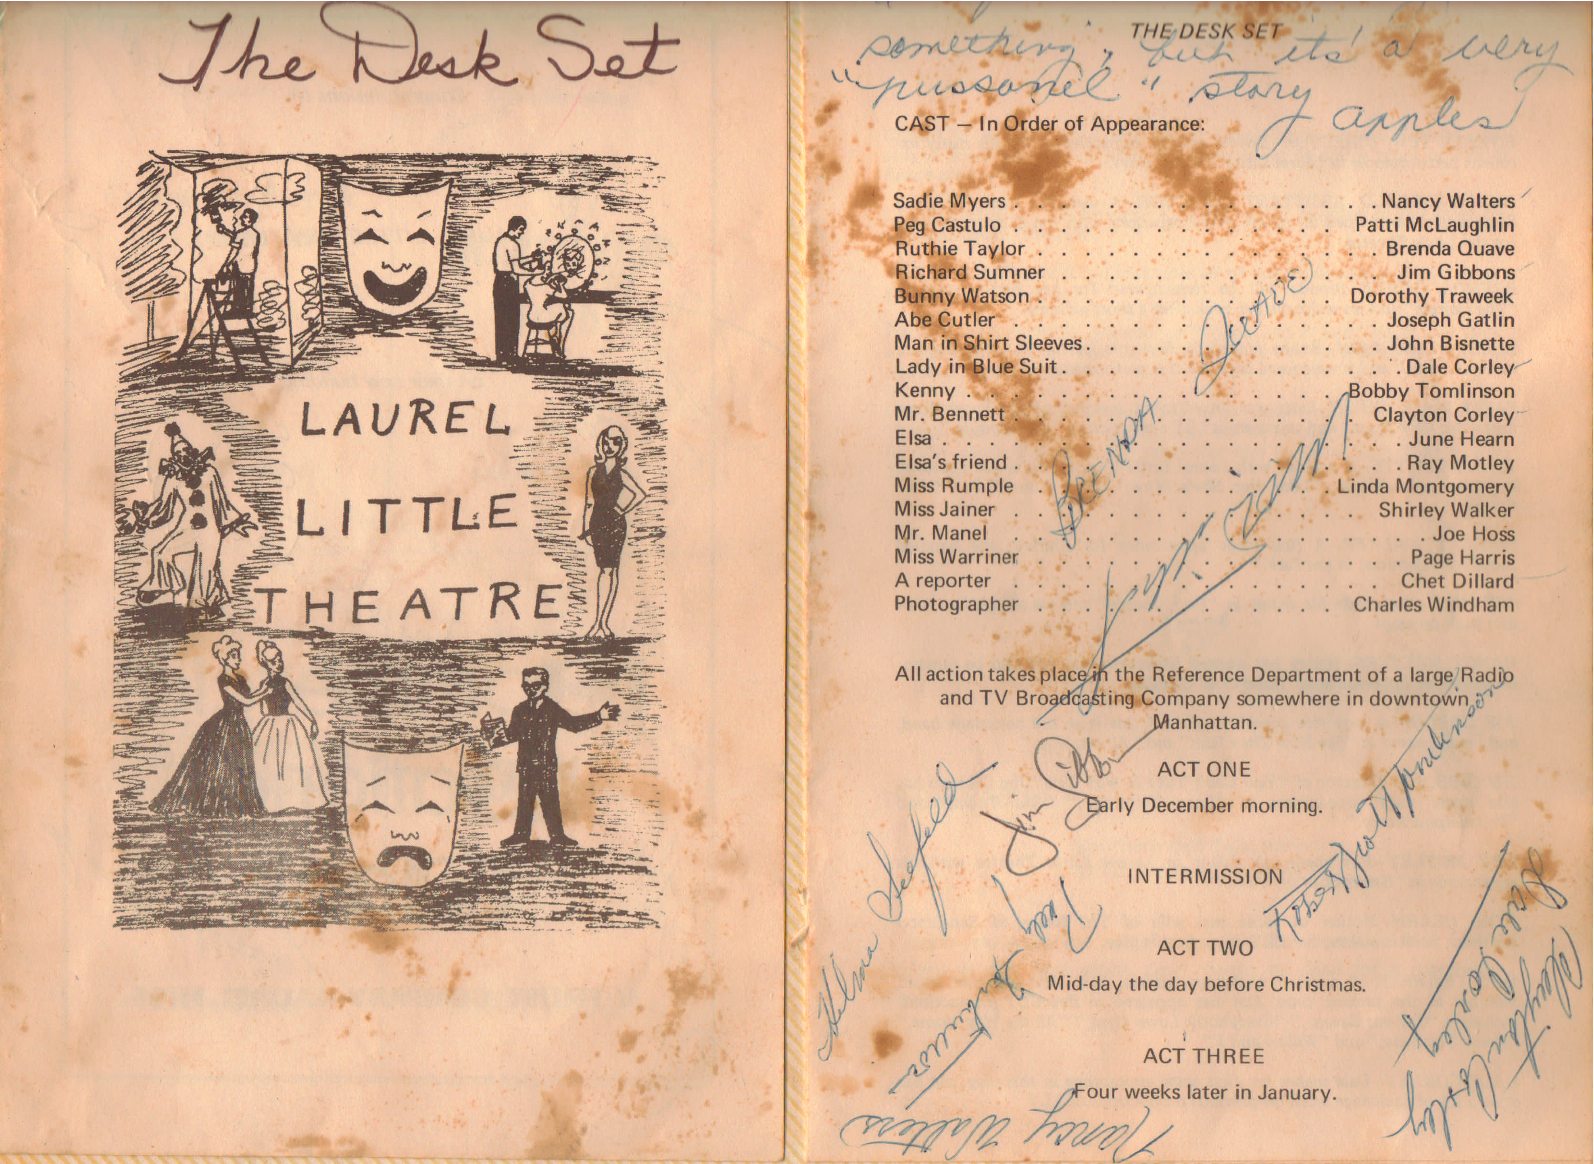 The Desk Set
LAUREL
LITTLE
THEATRE
THE DESK SET
something, but it's a very
"pussonel" story
apples
CAST – In Order of Appearance:
Sadie Myers . . . . . . . . . . . . . . . . Nancy Walters
Peg Castulo . . . . . . . . . . . . . . Patti McLaughlin
Ruthie Taylor . . . . . . . . . . . . . . . Brenda Quave
Richard Sumner . . . . . . . . . . . . . . Jim Gibbons
Bunny Watson . . . . . . . . . . . . . Dorothy Traweek
Abe Cutler . . . . . . . . . . . . . . . . Joseph Gatlin
Man in Shirt Sleeves . . . . . . . . . . . . . John Bisnette
Lady in Blue Suit . . . . . . . . . . . . . . . Dale Corley
Kenny . . . . . . . . . . . . . . . . Bobby Tomlinson
Mr. Bennett . . . . . . . . . . . . . . . Clayton Corley
Elsa . . . . . . . . . . . . . . . . . . . . June Hearn
Elsa's friend . . . . . . . . . . . . . . . . . Ray Motley
Miss Rumple . . . . . . . . . . . . . Linda Montgomery
Miss Jainer . . . . . . . . . . . . . . . . Shirley Walker
Mr. Manel . . . . . . . . . . . . . . . . . . Joe Hoss
Miss Warriner . . . . . . . . . . . . . . . . Page Harris
A reporter . . . . . . . . . . . . . . . . Chet Dillard
Photographer . . . . . . . . . . . . . Charles Windham
BRENDA QUAVE
All action takes place in the Reference Department of a large Radio
and TV Broadcasting Company somewhere in downtown
Manhattan.
ACT ONE
Early December morning.
Jim Gibbons
INTERMISSION
Robert Scott Tomlinson
Helma Seefeld
ACT TWO
Mid-day the day before Christmas.
Dale Corley
Clayton Corley
ACT THREE
Four weeks later in January.
Nancy Walters